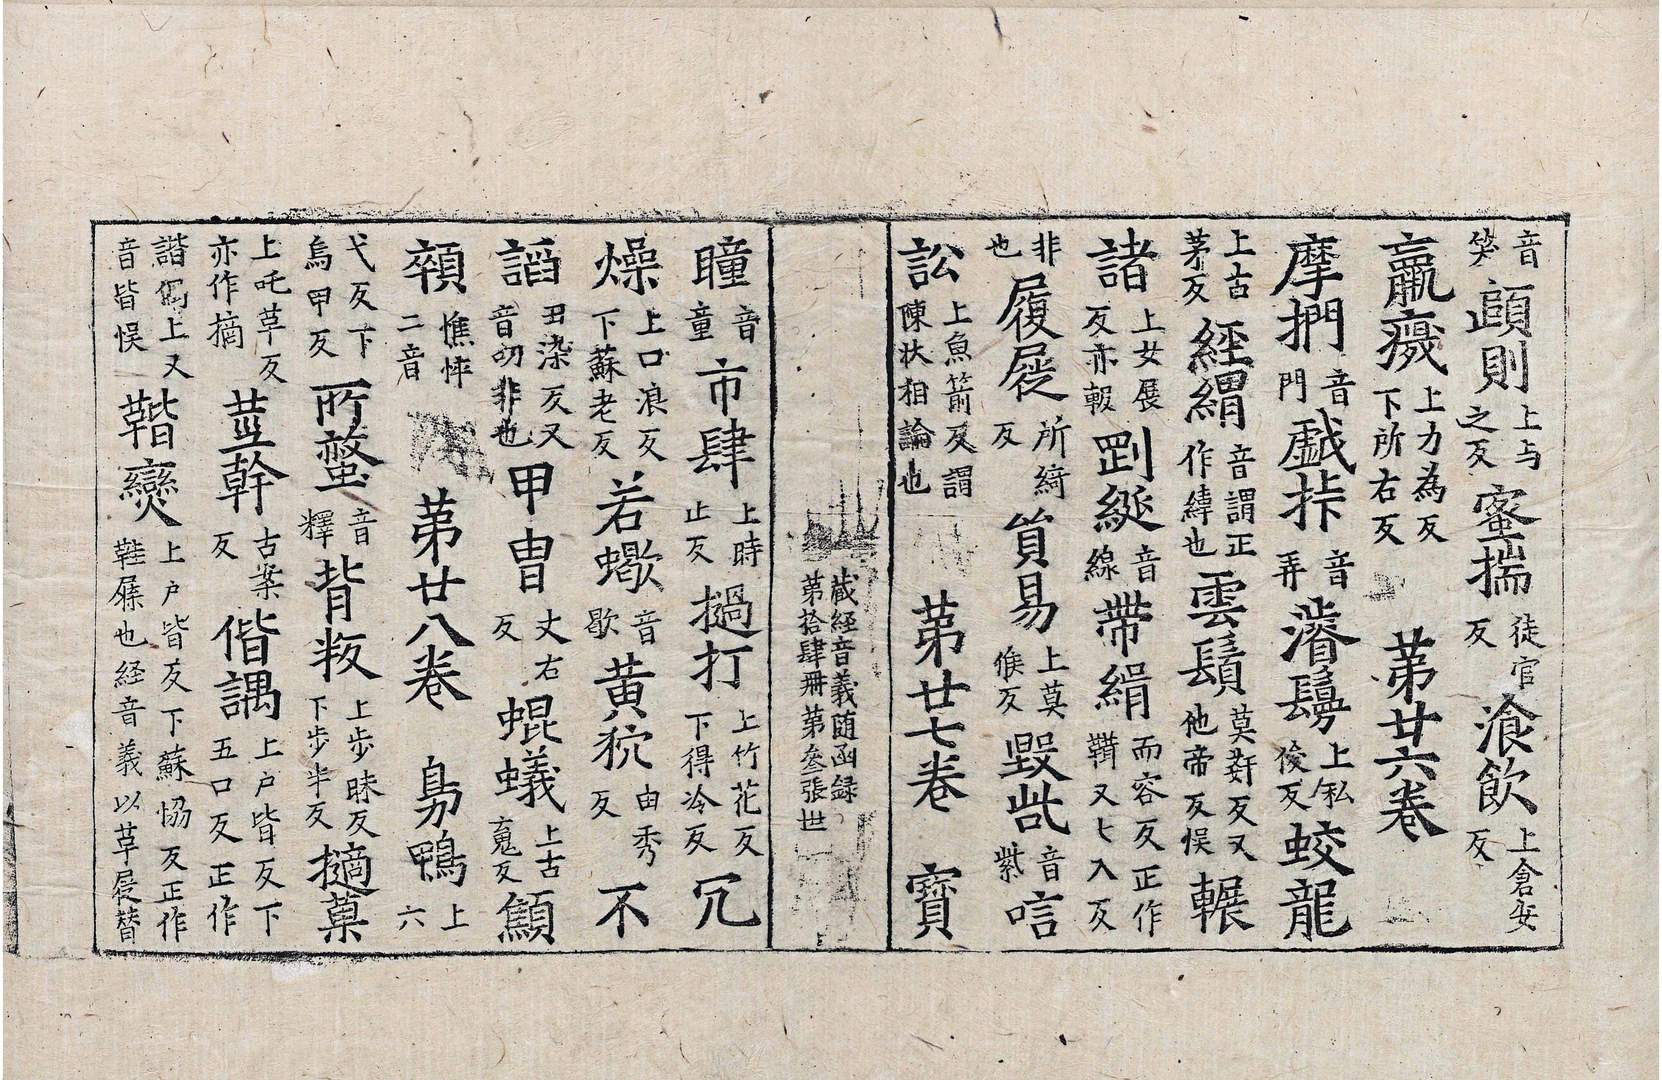 音笑頤則上与之反蜜揣徒官反飡飲上倉安反
羸㾪上力為反下所右反　第廿六卷
摩捫音門戯挊音弄濬鬚上私俊反蛟龍
上古茅反經緭音謂正作緯也雲鬚莫莽反又他帝反悮輾
諸上女展反亦報剾綖音線帶絹而容反正作鞲又七入反
非也履屣所綺反貿易上莫候反毀呰音紫唁
訟上魚箭反謂陳狀相論也　第廿七卷　寶
藏経音義随函録
第拾肆冊第叄張世
瞳音童市肆上時止反撾打上竹花反下得冷反冗
燥上口浪反下蘇老反若蠍音歇黄狖由秀反不
謟丑染反又音叨非也甲冑丈右反蜫蟻上古䰟反顦
顇憔悴二音　第廿八卷　鳬鴨上六
弋反下烏甲反所螫音釋背叛上步昧反下步半反擿菓
上吒草反亦作摘莖幹古案反偕謁上户皆反下五口反正作
諧偶上又音皆悮鞜㜻上户皆反下蘇協反正作鞋屧也経音義以草屐替